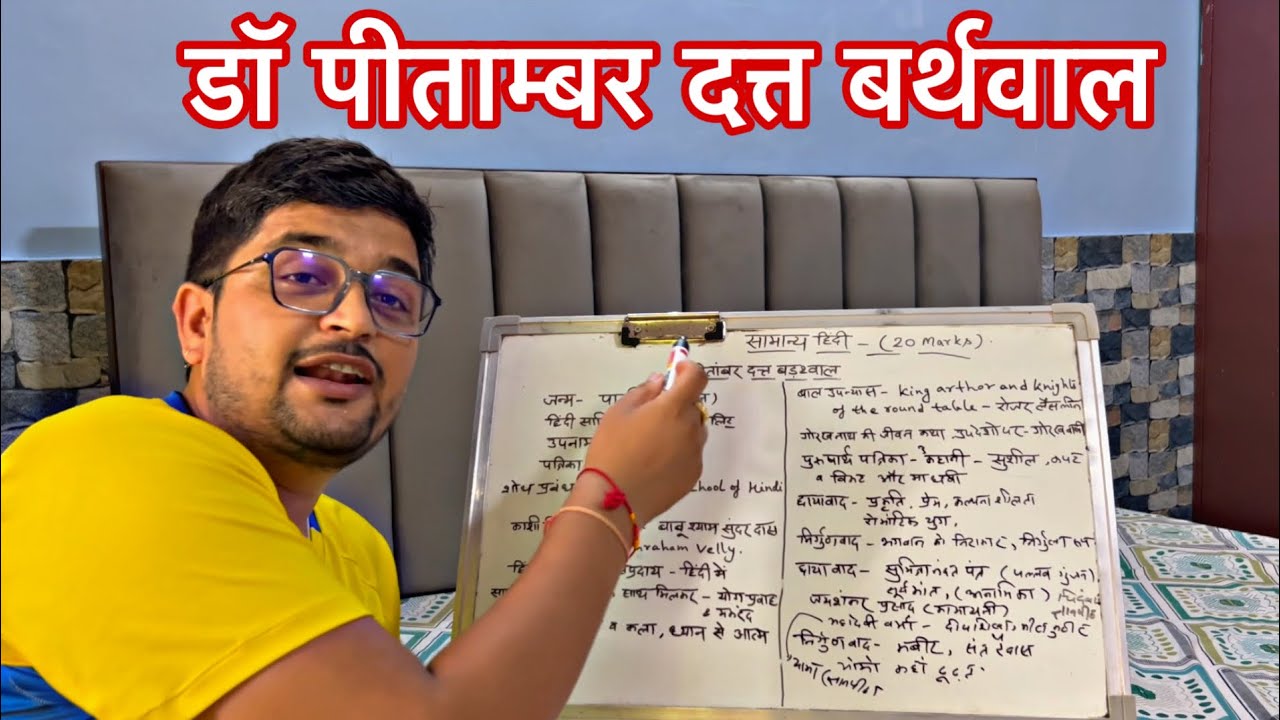 डॉ पीताम्बर दत्त बर्थवाल
सामान्य हिंदी - (20 Marks).
तांबर दत्त बड़थ्वाल
जन्म- पा
हिंदी सा
उपनाम
पत्रिका
शोध प्रबंध chool of Hindi
काशी बाबू श्याम सुंदर दास
raham Velly.
हिं प्रदाय - हिंदी में
साथ मिलकर - योग प्रवाह
व कला, ध्यान से आत्म
बाल उपन्यास - King arthor and Knights
of the round table - रोजर
गोरखनाथ की जीवन कथा उपदेशो पर - गोरखबानी
पुरुषार्थ पत्रिका - कहानी - सुशील, कपट
व और माधवी
छायावाद - प्रकृति, प्रेम, कल्पनाशीलता
रोमांटिक युग.
निर्गुणवाद - भगवान के निराकार, निर्गुण
छायावाद - सुमित्रानंदन पंत (पल्लव गुंजन)
सूर्यकांत, (अनामिका)
जयशंकर प्रसाद (कामायनी)
महादेवी वर्मा -
निर्गुणवाद - कबीर, संत रैदास